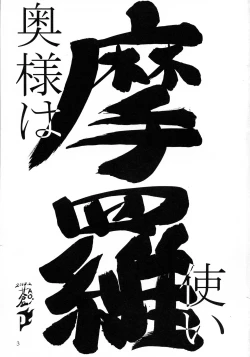 奥様は
摩羅
使い
3